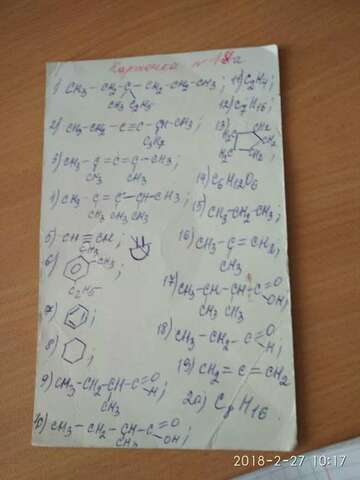 Карточка №18а
1) CH₃ – CH₂ – C – CH₂ – CH₂ – CH₃;
CH₃ C₂H₅
2) CH₃ – CH₂ – C ≡ C – CH – CH₃;
3) CH₃ – C = C = C – CH₃;
CH₃ CH₃
4) CH₃ – C = C – CH – CH₃;
CH₃ CH₃ CH₃
5) CH ≡ CH;
6)
CH₃
CH₃;
C₂H₅
7) ;
8) ;
9) CH₃ – CH₂ – CH – C = O
H;
CH₃
10) CH₃ – CH₂ – CH – C = O
OH;
CH₃
11) C₂H₄;
12) C₇H₁₆;
13) CH₂
H₂C CH₂;
H₂C CH₂
14) C₆H₁₂O₆
15) CH₃ CH₂ CH₃;
16) CH₃ – C = CH₂;
CH₃
17) CH₃ – CH – CH – C = O
OH;
CH₃ CH₃
18) CH₃ – CH₂ – C = O
H;
19) CH₂ = C = CH₂
20) C₈H₁₆.
2018-2-27 10:17